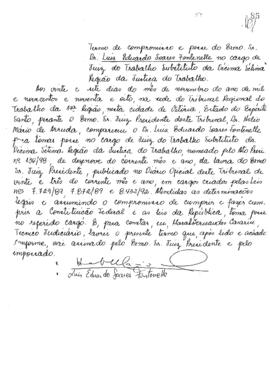 85
Termo de compromisso e posse do Exmo. Sr.
Dr. Luis Eduardo Soares Fontenelle no cargo de
Juiz do Trabalho Substituto da Décima Sétima
Região da Justiça do Trabalho.
Aos vinte e sete dias do mês de novembro do ano de mil
e novecentos e noventa e oito, na sede do Tribunal Regional do
Trabalho da 17ª Região, nesta cidade de Vitória, Estado do Espírito
Santo, perante o Exmo. Sr. Juiz Presidente deste Tribunal, Dr. Hélio
Mário de Arruda, compareceu o Dr. Luis Eduardo Soares Fontenelle
para tomar posse no cargo de Juiz do Trabalho Substituto da
Décima Sétima Região da Justiça do Trabalho nomeado pelo Ato Presi
nº 130/98, de dezenove do corrente mês e ano, da lavra do Exmo.
Sr. Juiz Presidente, publicado no Diário Oficial deste Tribunal de
vinte e três do corrente mês e ano, em cargos criados pelas Leis
nºs 7.729/89, 8.432/92. Atendidas as determinações
legais e assumindo o compromisso de cumprir e fazer cum-
prir a Constituição Federal e as leis da República, toma posse
no referido cargo. E, para constar, eu
Técnico Judiciário, lavrei o presente termo que após lido e achado
conforme, vai assinado pelo Exmo. Sr. Juiz Presidente e pelo
empossado.
Luis Eduardo Soares Fontenelle